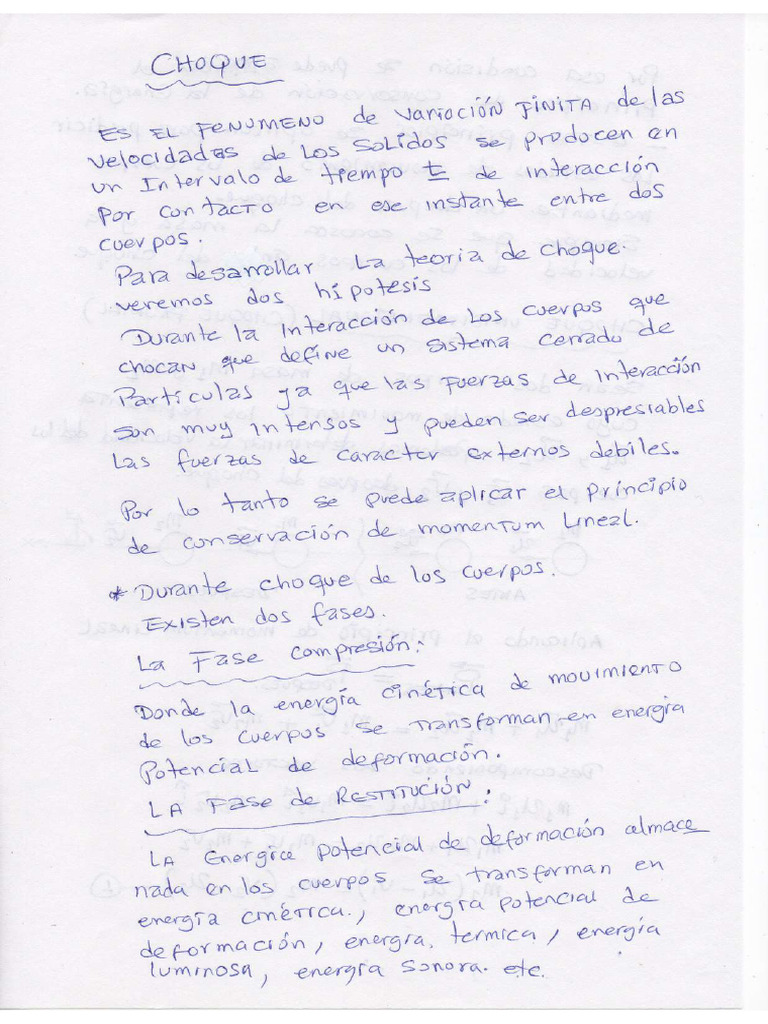 CHOQUE
ES EL FENUMENO de variación FINITA de las
velocidades de los Solidos se producen en
un Intervalo de tiempo t de interacción
Por contacto en ese instante entre dos
cuerpos.
Para desarrollar La teoria de choque.
veremos dos hipotesis
Durante la interacción de Los cuerpos que
chocan que define un sistema cerrado de
Partículas ya que las fuerzas de interacción
son muy intensos y pueden ser despresiables
Las fuerzas de caracter externos debiles.
Por lo tanto se puede aplicar el principio
de conservación de momentum Lineal.
* Durante choque de los cuerpos.
Existen dos fases.
La Fase compresión:
Donde la energía cinética de movimiento
de los cuerpos se transforman en energía
Potencial de deformación.
LA Fase de RESTITUCIÓN:
LA Energica potencial de deformación almace
nada en los cuerpos se transforman en
energía cinética., energía potencial de
deformación, energia, termica, energía
luminosa, energía sonora. etc.